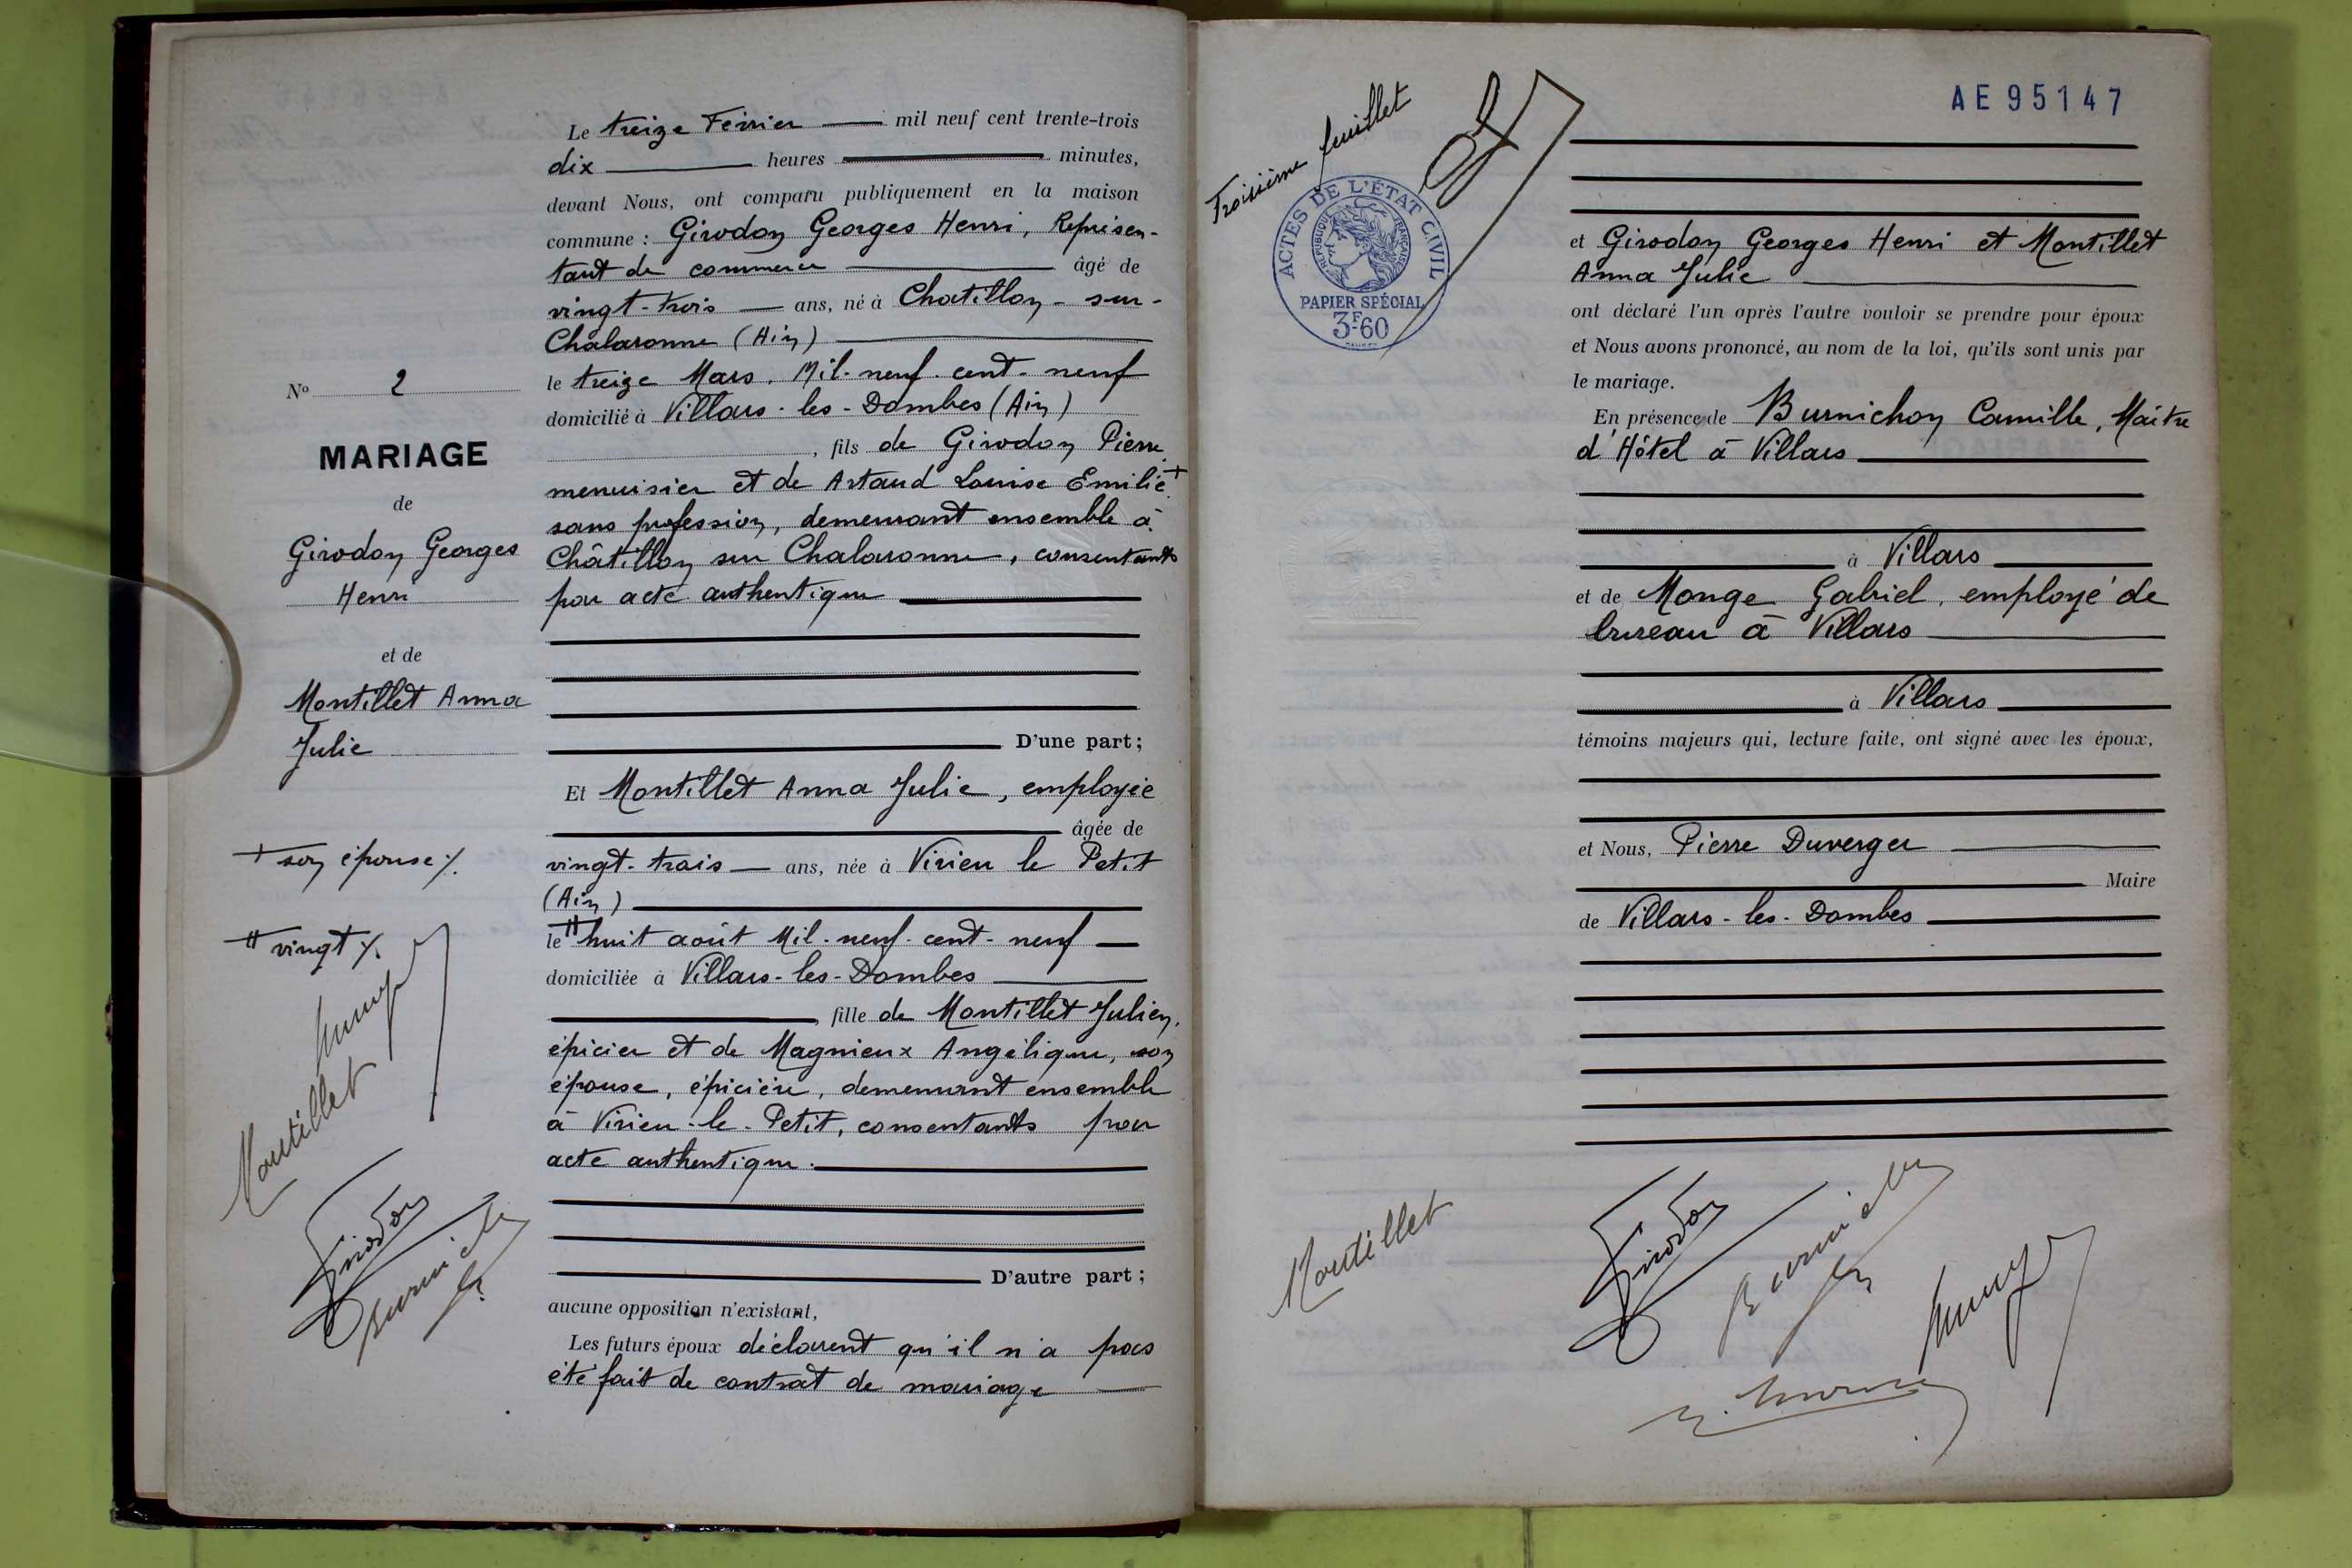 Le treize Février mil neuf cent trente-trois
dix heures minutes,
devant Nous, ont comparu publiquement en la maison
commune : Girodon Georges Henri, Représen-
tant de commerce âgé de
vingt-trois ans, né à Chatillon-sur-
Chalaronne (Ain)
le treize Mars. Mil-neuf-cent-neuf
domicilié à Villars-les-Dombes (Ain)
, fils de Girodon Pierre
menuisier et de Artaud Louise Emilie +
sans profession, demeurant ensemble à
Châtillon sur Chalaronne, consentants
par acte authentique
D'une part;
Et Montillet Anna Julie, employée
âgée de
vingt-trois ans, née à Virieu le Petit
(Ain)
le ++ huit août Mil-neuf-cent-neuf
domiciliée à Villars-les-Dombes
, fille de Montillet Julien,
épicier et de Magnieux Angélique, son
épouse, épicière, demeurant ensemble
à Virieu-le-Petit, consentants par
acte authentique.
D'autre part;
aucune opposition n'existant,
Les futurs époux déclarent qu'il n'a pas
été fait de contrat de mariage
N° 2
MARIAGE
de
Girodon Georges
Henri
et de
Montillet Anna
Julie
+ son épouse ./.
++ vingt ./.
Montillet
Girodon
Troisième feuillet
ACTES DE L'ÉTAT CIVIL
RÉPUBLIQUE FRANÇAISE
PAPIER SPÉCIAL
3F60
AE95147
et Girodon Georges Henri et Montillet
Anna Julie
ont déclaré l'un après l'autre vouloir se prendre pour époux
et Nous avons prononcé, au nom de la loi, qu'ils sont unis par
le mariage.
En présence de Burnichon Camille, Maître
d'Hôtel à Villars
à Villars
et de Monge Gabriel, employé de
bureau à Villars
à Villars
témoins majeurs qui, lecture faite, ont signé avec les époux,
et Nous, Pierre Duverger
Maire
de Villars-les-Dombes
Montillet
Girodon